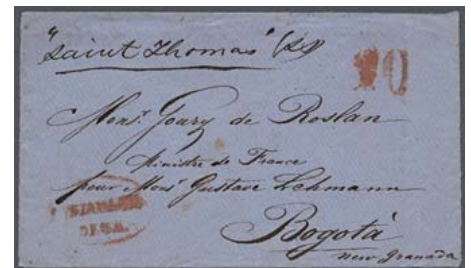 "Saint Thomas"
10
Monsr. Goury de Roslan
Ministre de France
pour Monsr Gustave Lehmann
Bogotá
New Granada